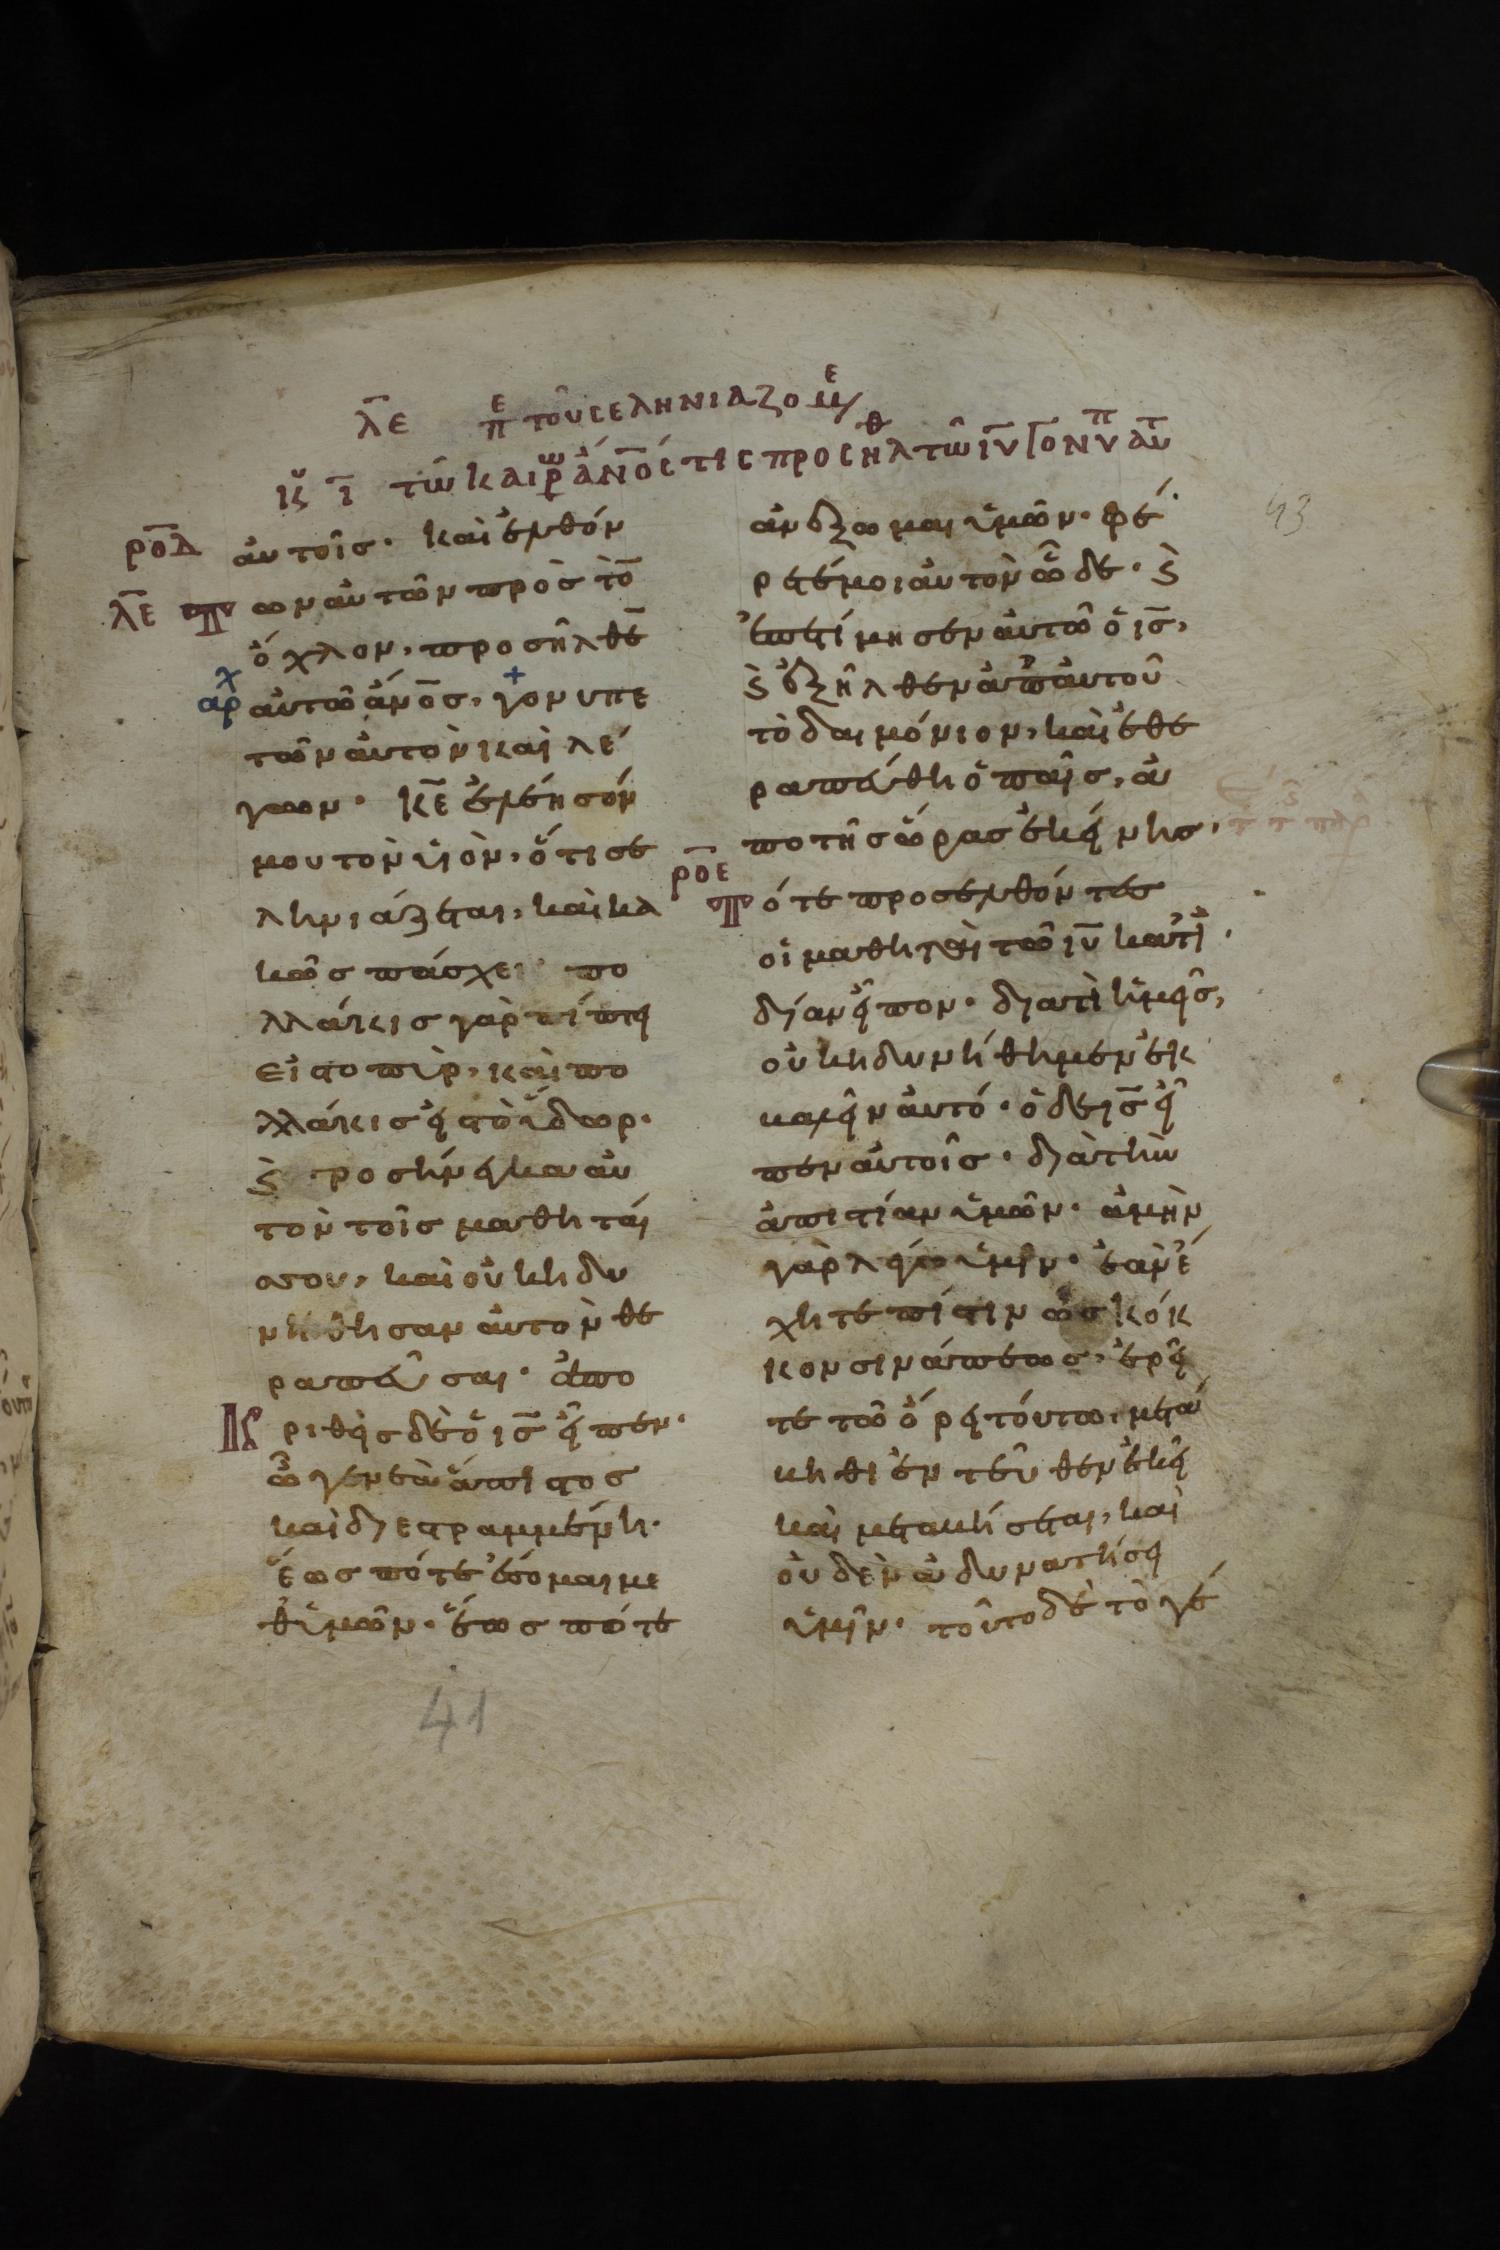 λ̅ε̅ πε τοῦ σεληνιαζομε
κυ ι̅ τῶ καιρω ἀν̅ος τις προσηλθ τῶ ιυ̅ γονυπ αυτ
ρο̅δ
αὐτοῖσ· καὶ ἐλθόν
λ̅ε̅
τωναὐτῶν πρὸσ τὸ̅
ὄχλον, προσῆλθε̅
αρχ
αὐτῶ ἄν̅οσ, γονυπε
τῶν αὐτὸν καὶ λέ
γων· κ̅ε̅ ἐλέησόν
μου τὸν υἱὸν, ὅτι σε
ληνιάζεται, καὶ κα
κῶσ πάσχει πο
λλάκισ γὰρ πίπτει
εἰσ το πῦρ, καὶ πο
λλάκισ εἰσ τὸ ὕδωρ·
ϗ προσήνεγκα αὐ
τὸν τοῖσ μαθηταί
σσου, καὶ οὐκ ηδυ
νήθησαν αὐτὸν θε
ραπεῦσαι· ἀπο
κριθεὶσ δὲ ὁ ι̅σ̅ εἶπεν·
ὦ γενεὰ ἄπιστοσ
καὶ διεστραμμένη·
ἕωσ πότε ἔσομαι με
θ ὑμῶν· ἕωσ πότε
43
ἀνέξωμαι ὑμῶν· φέ
ρετέ μοι αὐτὸν ὧδε· ϗ
ἐπετίμησεν αὐτῶ ὁ ι̅σ̅,
ϗ ἐξῆλθεν ἀπ αὐτοῦ
τὸ δαιμόνιον, καὶ ἐθε
ραπεύθη ὁ παῖσ, ἀ
πο τῆσ ὥρασ ἐκείνησ,
ρο̅ε
τότε προσελθόντεσ
οἱ μαθηταὶ τῶ ιυ̅ κατἰ
δίαν εἶπον· διατὶ ἡμεῖσ,
οὐκ ηδυνήθημεν ἐκ
βαλεῖν αὐτό· ὁ δε ι̅σ̅ εἶ
πεν αὐτοῖσ· διὰ τὴν
ἀπιστίαν ὑμῶν· ἀμὴν
γὰρ λέγω ὑμῖν· ἐὰν ἔ
χητε πίστιν ὡσ κόκ
κον σινάπεωσ, ἐρεῖ
τε τῶ ὄρει τούτω, μετά
βηθι ἐντεῦθεν ἐκεῖ
καὶ μεταβήσεται, καὶ
οὐδὲν ἀδυνατήσει
ὑμῖν· τοῦτο δὲ τὸ γέ
41